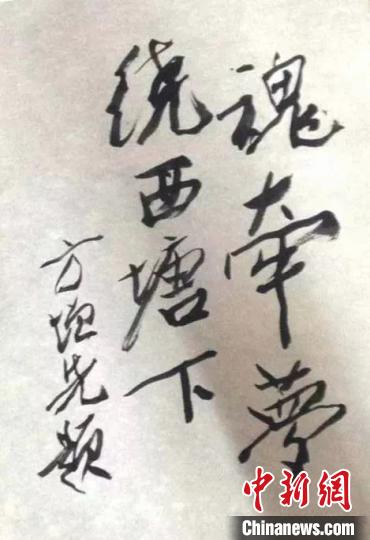 魂牵梦
绕西塘下
方增先题
中新网
Chinanews.com